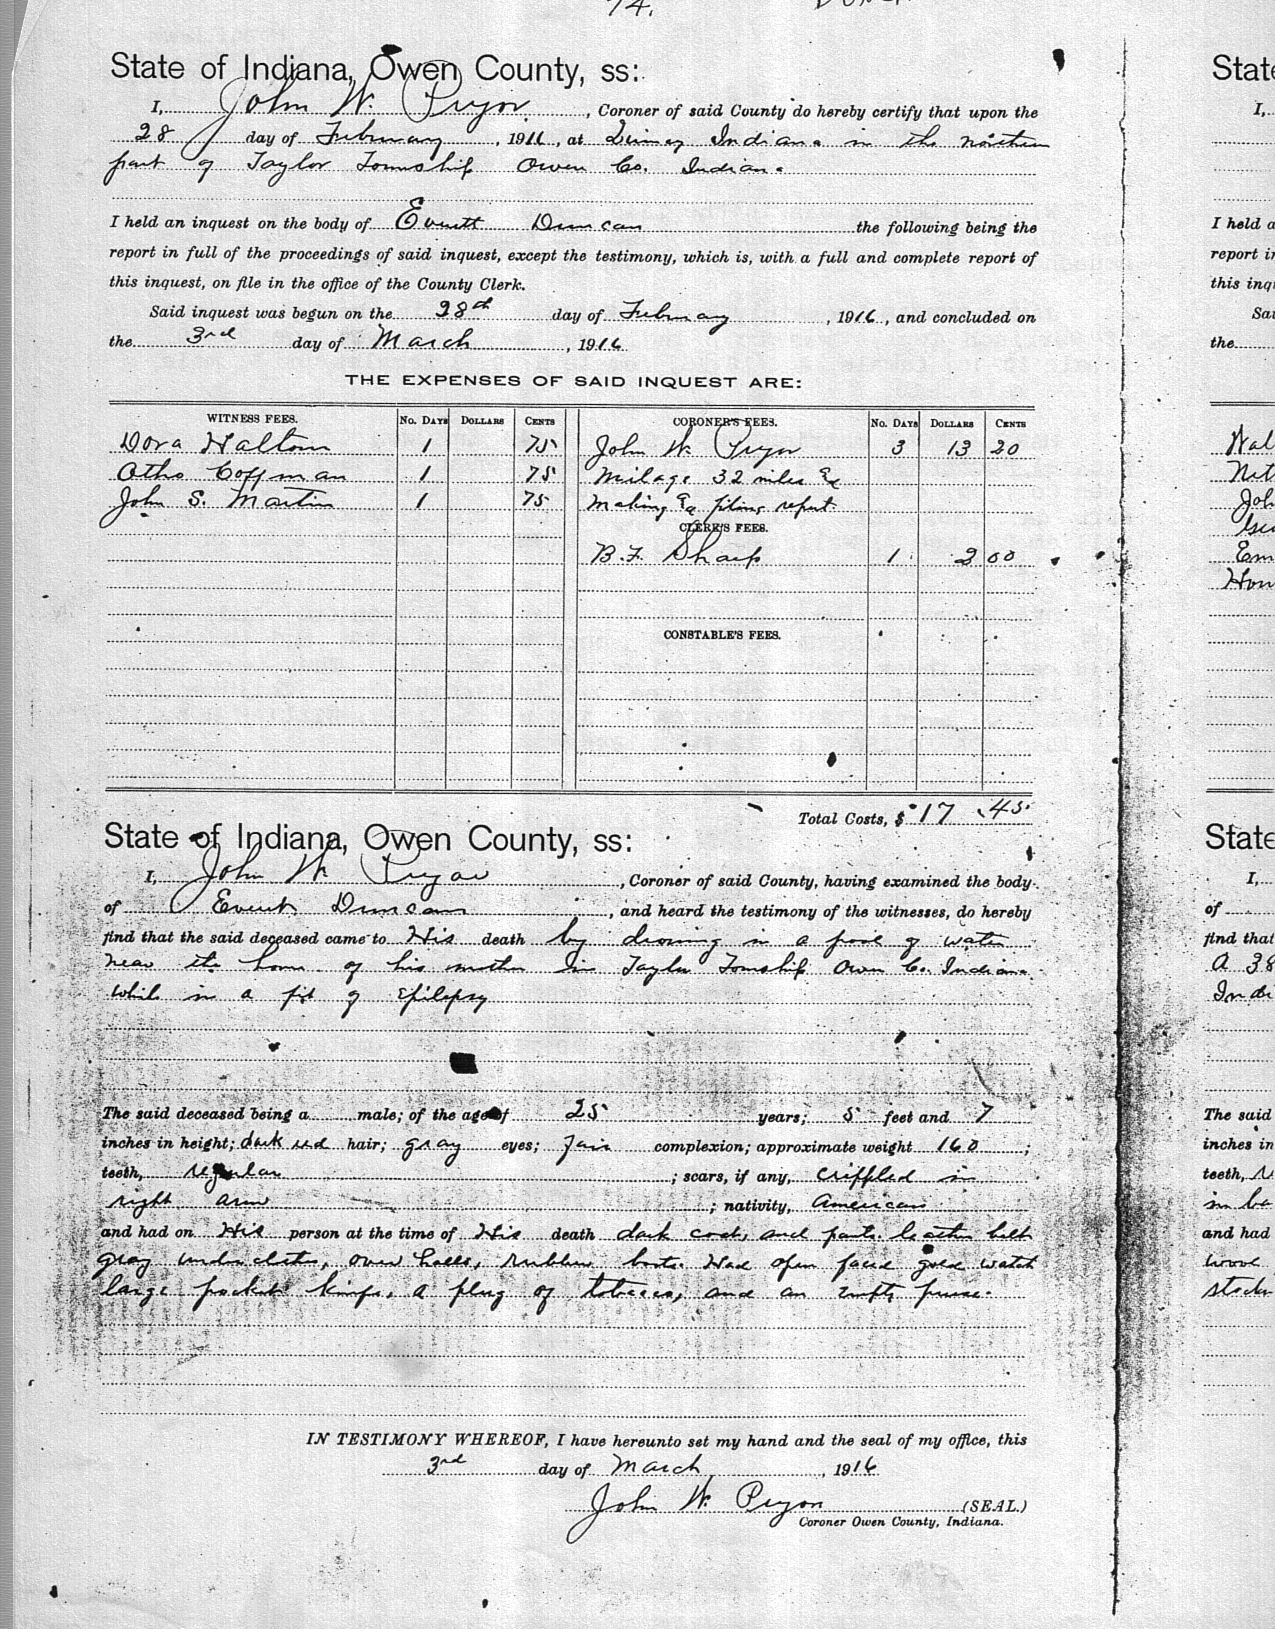 74.
State of Indiana, Owen County, ss:
I, John W. Pryor, Coroner of said County do hereby certify that upon the
28 day of February, 1916, at Quincy Indiana in the northern
part of Taylor Township Owen Co. Indiana
I held an inquest on the body of Everett Duncan the following being the
report in full of the proceedings of said inquest, except the testimony, which is, with a full and complete report of
this inquest, on file in the office of the County Clerk.
Said inquest was begun on the 28th day of February, 1916, and concluded on
the 3rd day of March, 1916
THE EXPENSES OF SAID INQUEST ARE:
WITNESS FEES. No. DAYS DOLLARS CENTS CORONER'S FEES. No. DAYS DOLLARS CENTS
Dora Haltom 1 75 John W. Pryor 3 13 20
Otho Coffman 1 75 Milage 32 miles &
John S. Martin 1 75 making & filing report
CLERK'S FEES.
B. F. Sharp 1 2 00
CONSTABLE'S FEES.
Total Costs, $ 17.45
State of Indiana, Owen County, ss:
I, John W. Pryor, Coroner of said County, having examined the body
of Everett Duncan, and heard the testimony of the witnesses, do hereby
find that the said deceased came to His death by drowing in a pool of water
near the home of his mother in Taylor Township Owen Co. Indiana
while in a fit of Epilepsy
The said deceased being a male; of the age of 25 years; 5 feet and 7
inches in height; dark red hair; gray eyes; fair complexion; approximate weight 160;
teeth, regular; scars, if any, crippled in
right arm; nativity, American
and had on His person at the time of His death dark coat, and pants. leather belt
gray underclothes, over halls, rubber boots. Had open faced gold watch
large pocket knife, a plug of tobacco, and an empty purse.
IN TESTIMONY WHEREOF, I have hereunto set my hand and the seal of my office, this
3rd day of March, 1916
John W. Pryor (SEAL.)
Coroner Owen County, Indiana.
State
I,
I held a
report in
this inqu
Sai
the
John
Em
State
I,
of
find that
A 38
Indi
The said
inches in
teeth, r
in ba
and had
wove
stock